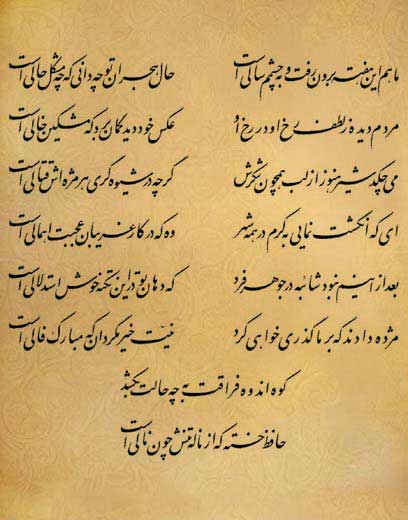 ماهم این هفته برون رفت و به چشمم سالی است حال هجران تو چه دانی که چه مشکل حالی است
مردم دیده ز لطف رخ او در رخ او عکس خود دید گمان برد که مشکین خالی است
می چکد شیر هنوز از لب همچون شکرش گرچه در شیوه گری هر مژه اش قتالی است
ای که انگشت نمایی به کرم در همه شهر وه که در کار غریبان عجبت اهمالی است
بعد از اینم نبود شائبه در جوهر فرد که دهان تو در این نکته خوش استدلالی است
مژده دادند که بر ما گذری خواهی کرد نیت خیر مگردان که مبارک فالی است
کوه اندوه فراقت به چه حالت بکشد
حافظ خسته که از ناله تنش چون نالی است